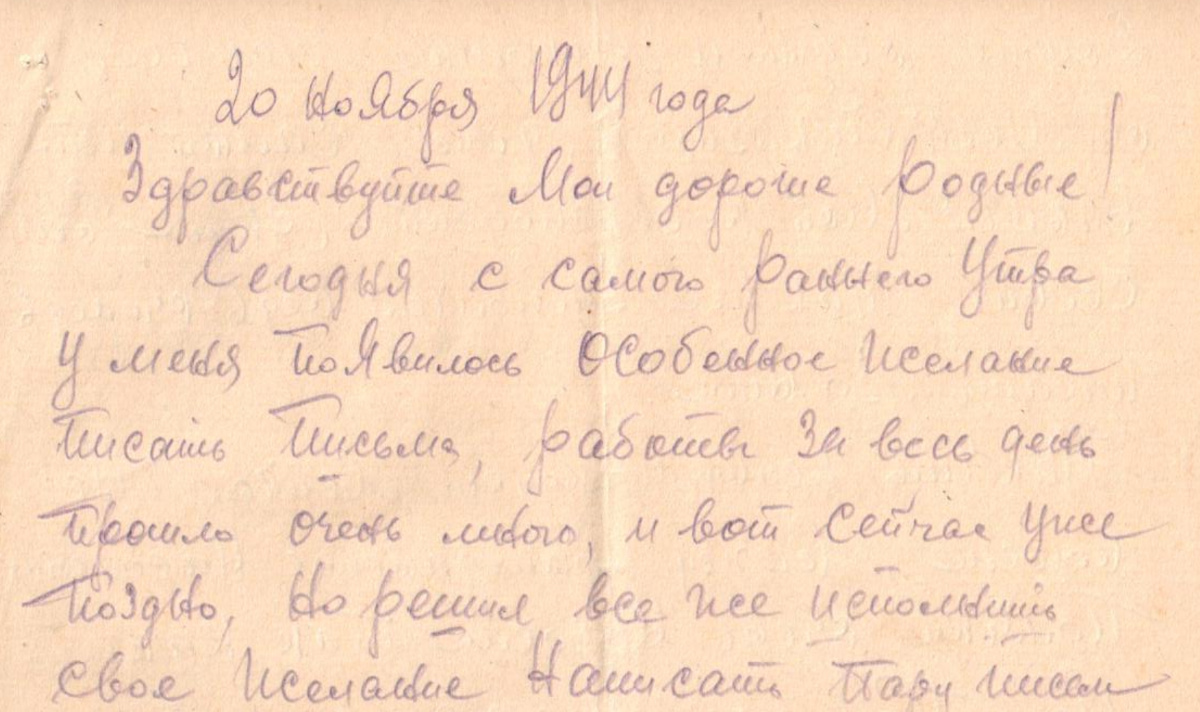 20 ноября 1944 года
Здравствуйте Мои дорогие родные!
Сегодня с самого раннего Утра
У меня появилось особенное желание
Писать Письма, работы За весь день
Прошло очень много, и вот сейчас уже
Поздно, но решил все же исполнить
свое желание Написать Пару писем